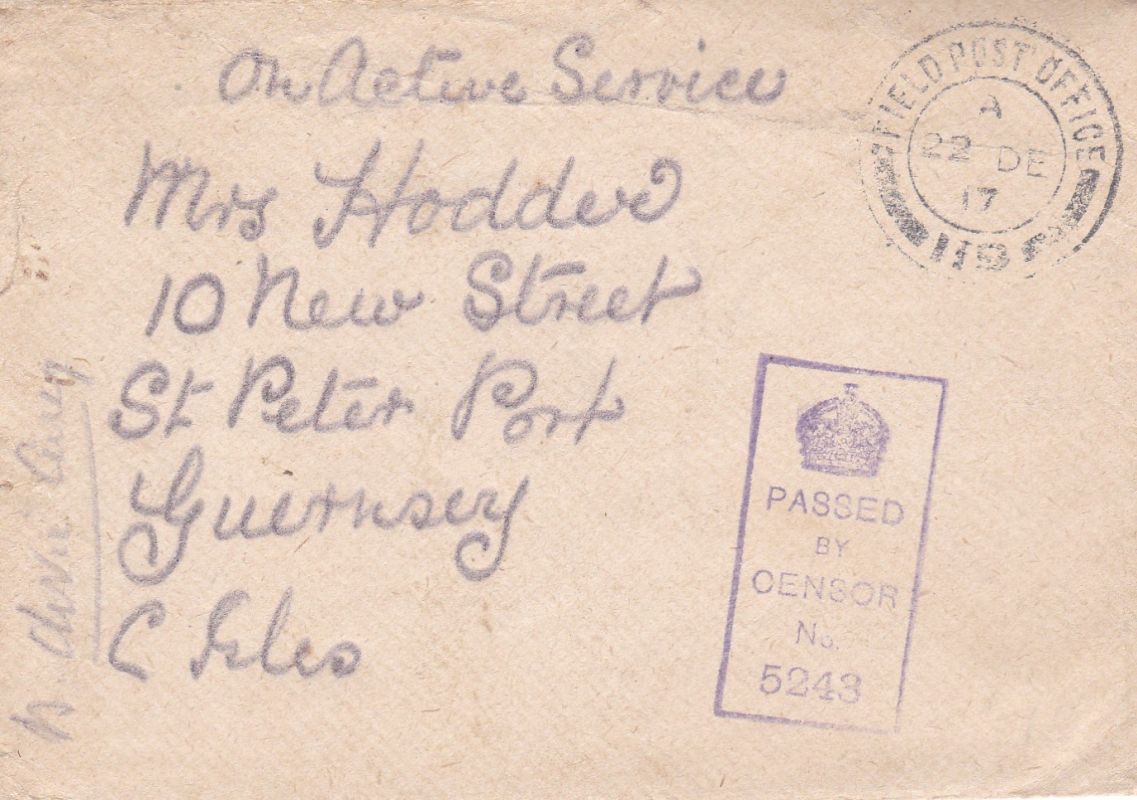 On Active Service
FIELD POST OFFICE
A
22 DE
17
Mrs Hodder
10 New Street
St Peter Port
Guernsey
C Isles
PASSED
BY
CENSOR
No.
5243